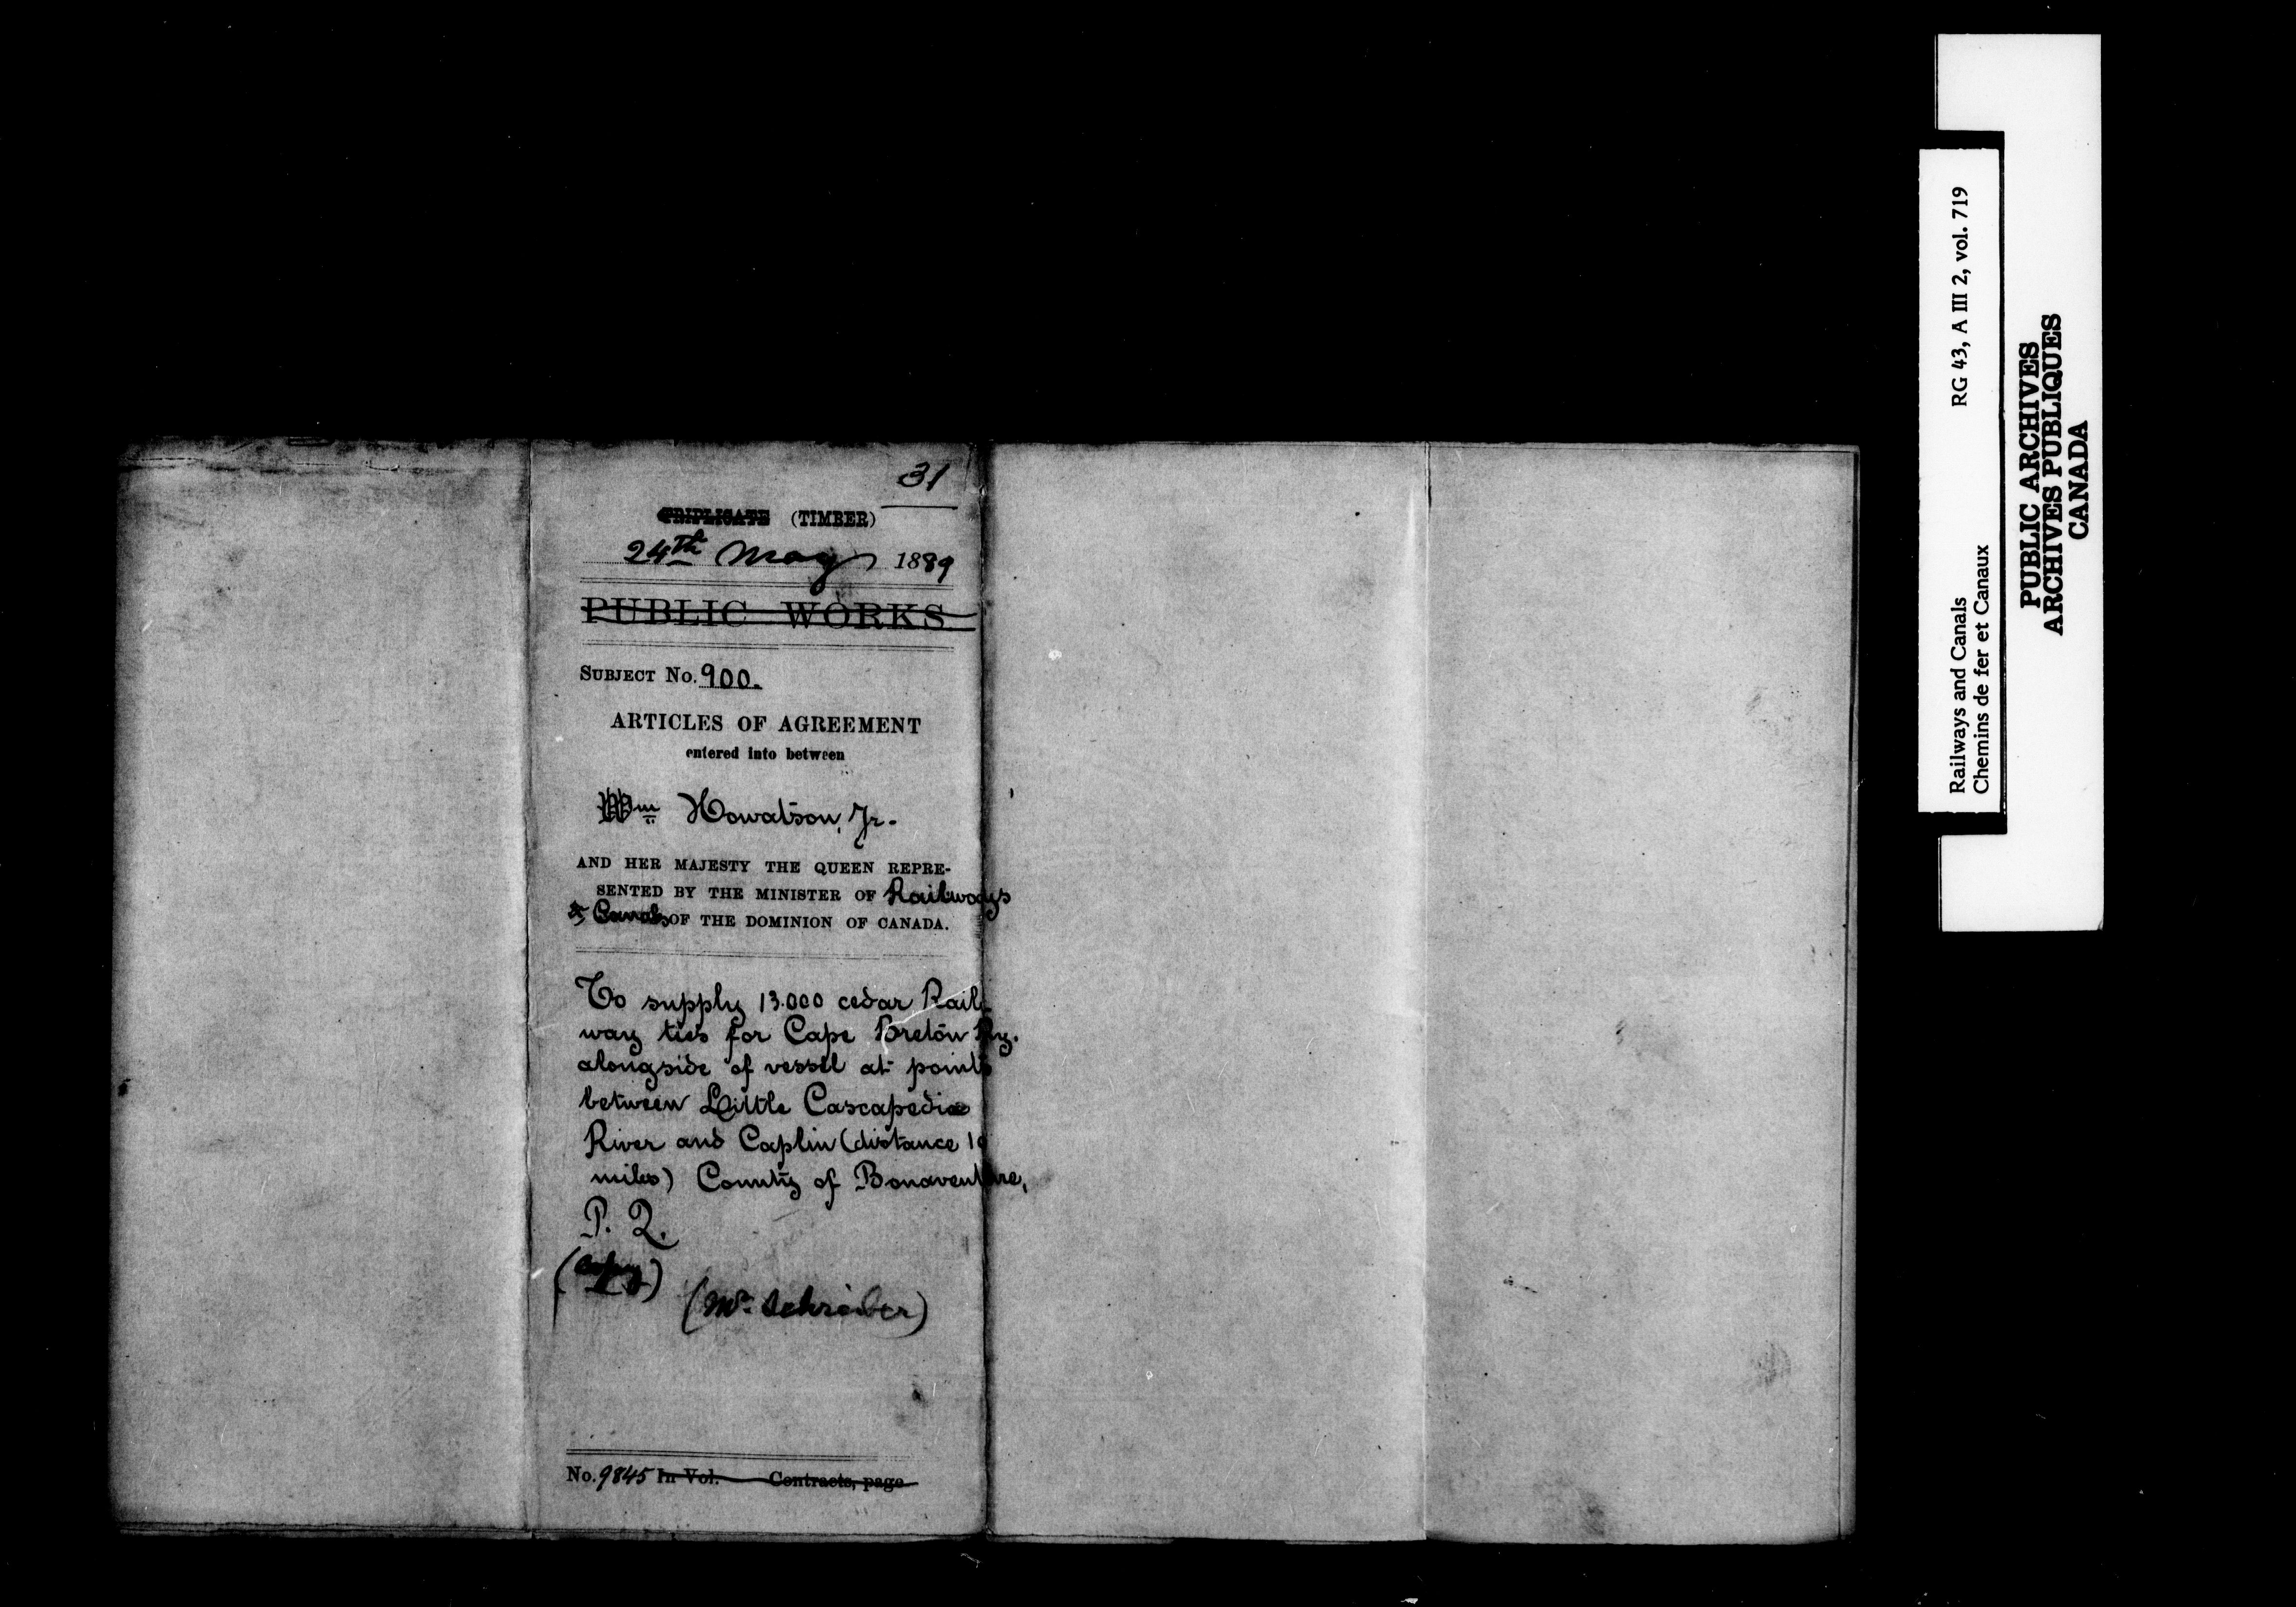 31
TRIPLICATE (TIMBER)
24th May 1889
PUBLIC WORKS
SUBJECT No. 900.
ARTICLES OF AGREEMENT
entered into between
Wm Howatson, Jr.
AND HER MAJESTY THE QUEEN REPRE-
SENTED BY THE MINISTER OF Railways
& Canals OF THE DOMINION OF CANADA.
To supply 13.000 cedar Rail-
way ties for Cape Breton Ry.
alongside of vessel at points
between Little Cascapedia
River and Caplin (distance
miles) County of Bonaventure,
P. Q.
(Copy)
(Mr. Schreiber)
No. 9845 In Vol. Contracts, page
Railways and Canals RG 43, A III 2, vol. 719
Chemins de fer et Canaux
PUBLIC ARCHIVES
ARCHIVES PUBLIQUES
CANADA